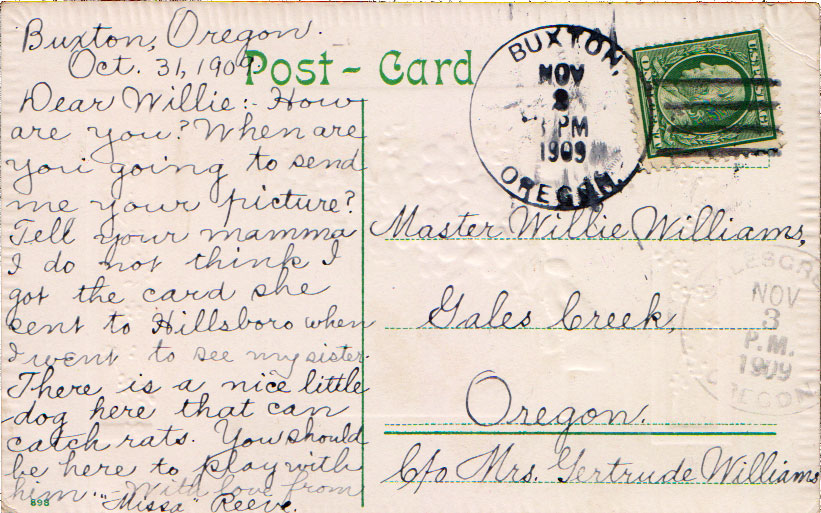 Buxton, Oregon.
Oct. 31, 1909
Post-Card
Dear Willie:- How
are you? When are
you going to send
me your picture?
Tell your mamma
I do not think I
got the card she
sent to Hillsboro when
I went to see my sister.
There is a nice little
dog here that can
catch rats. You should
be here to play with
him. With love from
"Missa" Reeve.
898
BUXTON,
NOV
PM
1909
OREGON.
Master Willie Williams,
Gales Creek,
Oregon.
C/o Mrs. Gertrude Williams
NOV
3
P.M.
1909
OREGON